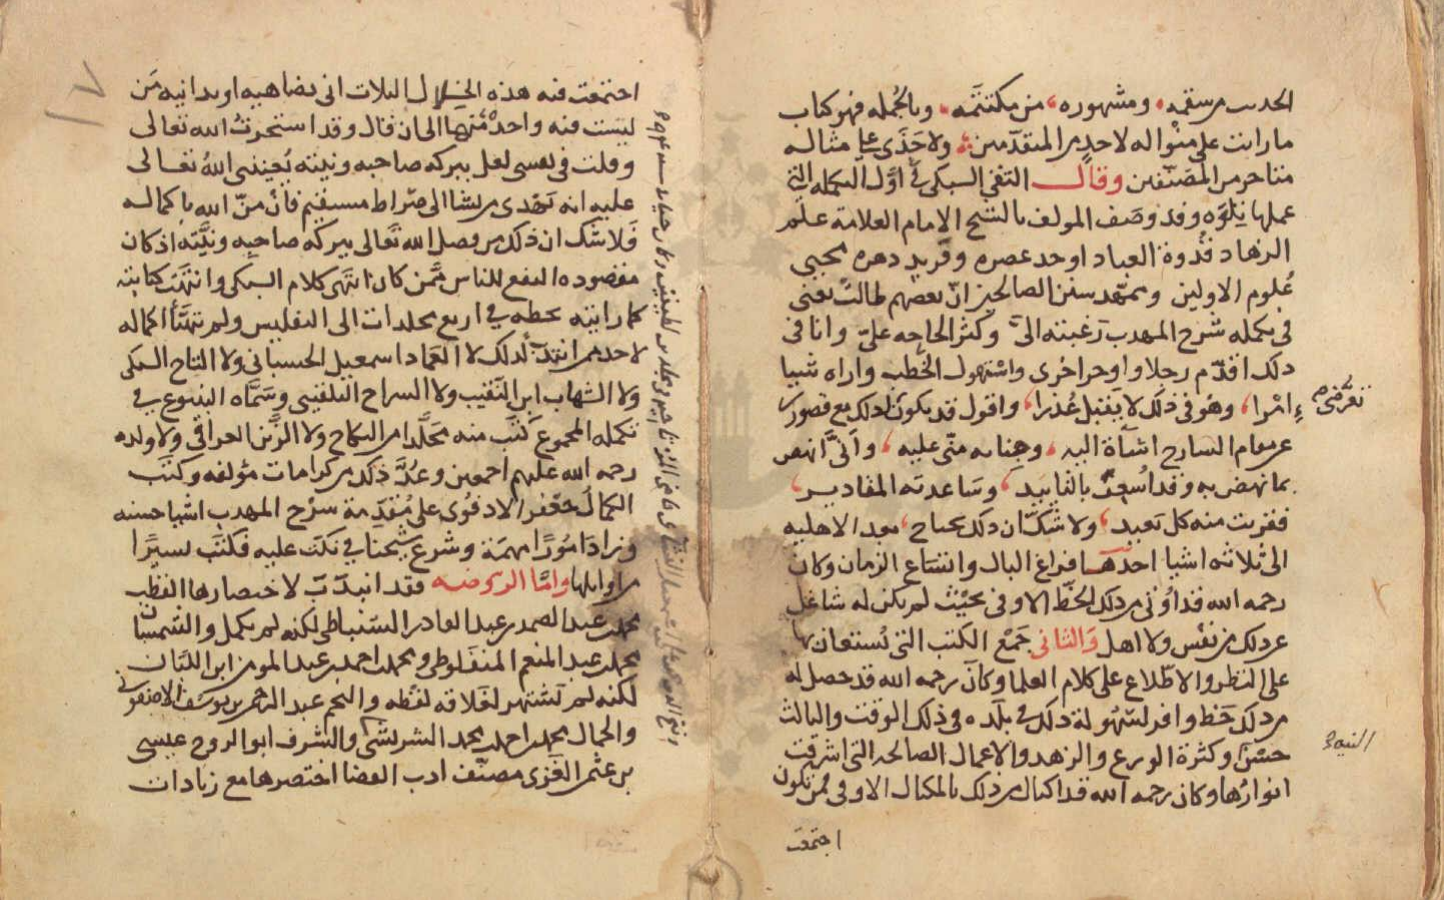 الحديث من سقمه، ومشهوره، من مكتتمه، وبالجمله فهو كتاب
ما رايت على منواله لاحد من المتقدمين، ولا حذى على مثاله
متاخر من المصنفين وقال التقي السبكي في اول التكمله التي
عملها تلوه وقد وصف المولف بالشيخ الامام العلامة علم
الزهاد قدوة العباد اوحد عصره وفريد دهره محيى
علوم الاولين وممهد سنن الصالحين ان بعضهم طالت يعنى
في تكمله شرح المهذب رغبته الى وكثر الحاحه على وانا في
ذلك اقدم رجلا واوخر اخرى واستهول الخطب واراه شيا
امرا، وهو في ذلك لا يقبل عذرا، واقول قد يكون ذلك مع قصور
عن مقام الشارح اساءة اليه، وجنايه منى عليه، وانى انهض
بما نهض به وقد اسعف بالتاييد، وساعدته المقادير،
فقربت منه كل بعيد، ولا شك ان ذلك يحتاج، بعد الاهليه
الى ثلاثه اشيا احدها فراغ البال واتساع الزمان وكان
رحمه الله قد اوتى من ذلك الحظ الاوفى بحيث لم يكن له شاغل
عن ذلك من نفس ولا اهل والثانى جمع الكتب التى يستعان بها
على النظر والاطلاع على كلام العلما وكان رحمه الله قد حصل له
من ذلك حظ وافر لسهولة ذلك في بلده في ذلك الوقت والثالث
حسن النيه وكثرة الورع والزهد والاعمال الصالحه التى اشرقت
انوارها وكان رحمه الله قد اكتال من ذلك بالمكيال الاوفى فمن تكون
اجتمعت
اجتمعت فيه هذه الخلال الثلاث انى يضاهيه او يدانيه من
ليست فيه واحدة منها الى ان قال وقد استخرت الله تعالى
وقلت في نفسى لعل ببركه صاحبه ونيته يعيننى الله تعالى
عليه انه يهدى من يشا الى صراط مستقيم فان من الله باكماله
فلا شك ان ذلك من فضل الله تعالى ببركه صاحبه ونيته اذ كان
مقصوده النفع للناس ممن كان انتهى كلام السبكى وانتهت كتابته
كما رايته بخطه في اربع مجلدات الى التفليس ولم تتهيأ اكماله
لاحد ممن انتدب لذلك لا العماد اسمعيل الحسبانى ولا التاج السبكى
ولا الشهاب ابن النقيب ولا السراج البلقينى وسماه الينبوع في
تكمله المجموع كتب منه مجلدا من النكاح ولا الزين العراقى ولا ولده
رحمه الله عليهم اجمعين وعد ذلك من كرامات مؤلفه وكتب
الكمال جعفر الادفوى على مقدمة شرح المهذب اشيا حسنه
وزاد امورا مهمة وشرع شيخنا في نكت عليه فكتب يسيرا
من اوايلها واما الروضه فقد انتدب لاختصارها القطب
محمد بن عبد الصمد بن عبد القادر السنباطى لكنه لم يكمل والشمسان
محمد بن عبد المنعم المنفلوطى ومحمد بن احمد بن عبد المومن ابن اللبان
لكنه لم تشتهر لغلاقه لفظه والنجم عبد الرحمن بن يوسف الاصفونى
والجمال محمد بن احمد بن محمد الشريشى والشرف ابو الروح عيسى
بن عثمن الغزى مصنف ادب القضا اختصرها مع زيادات